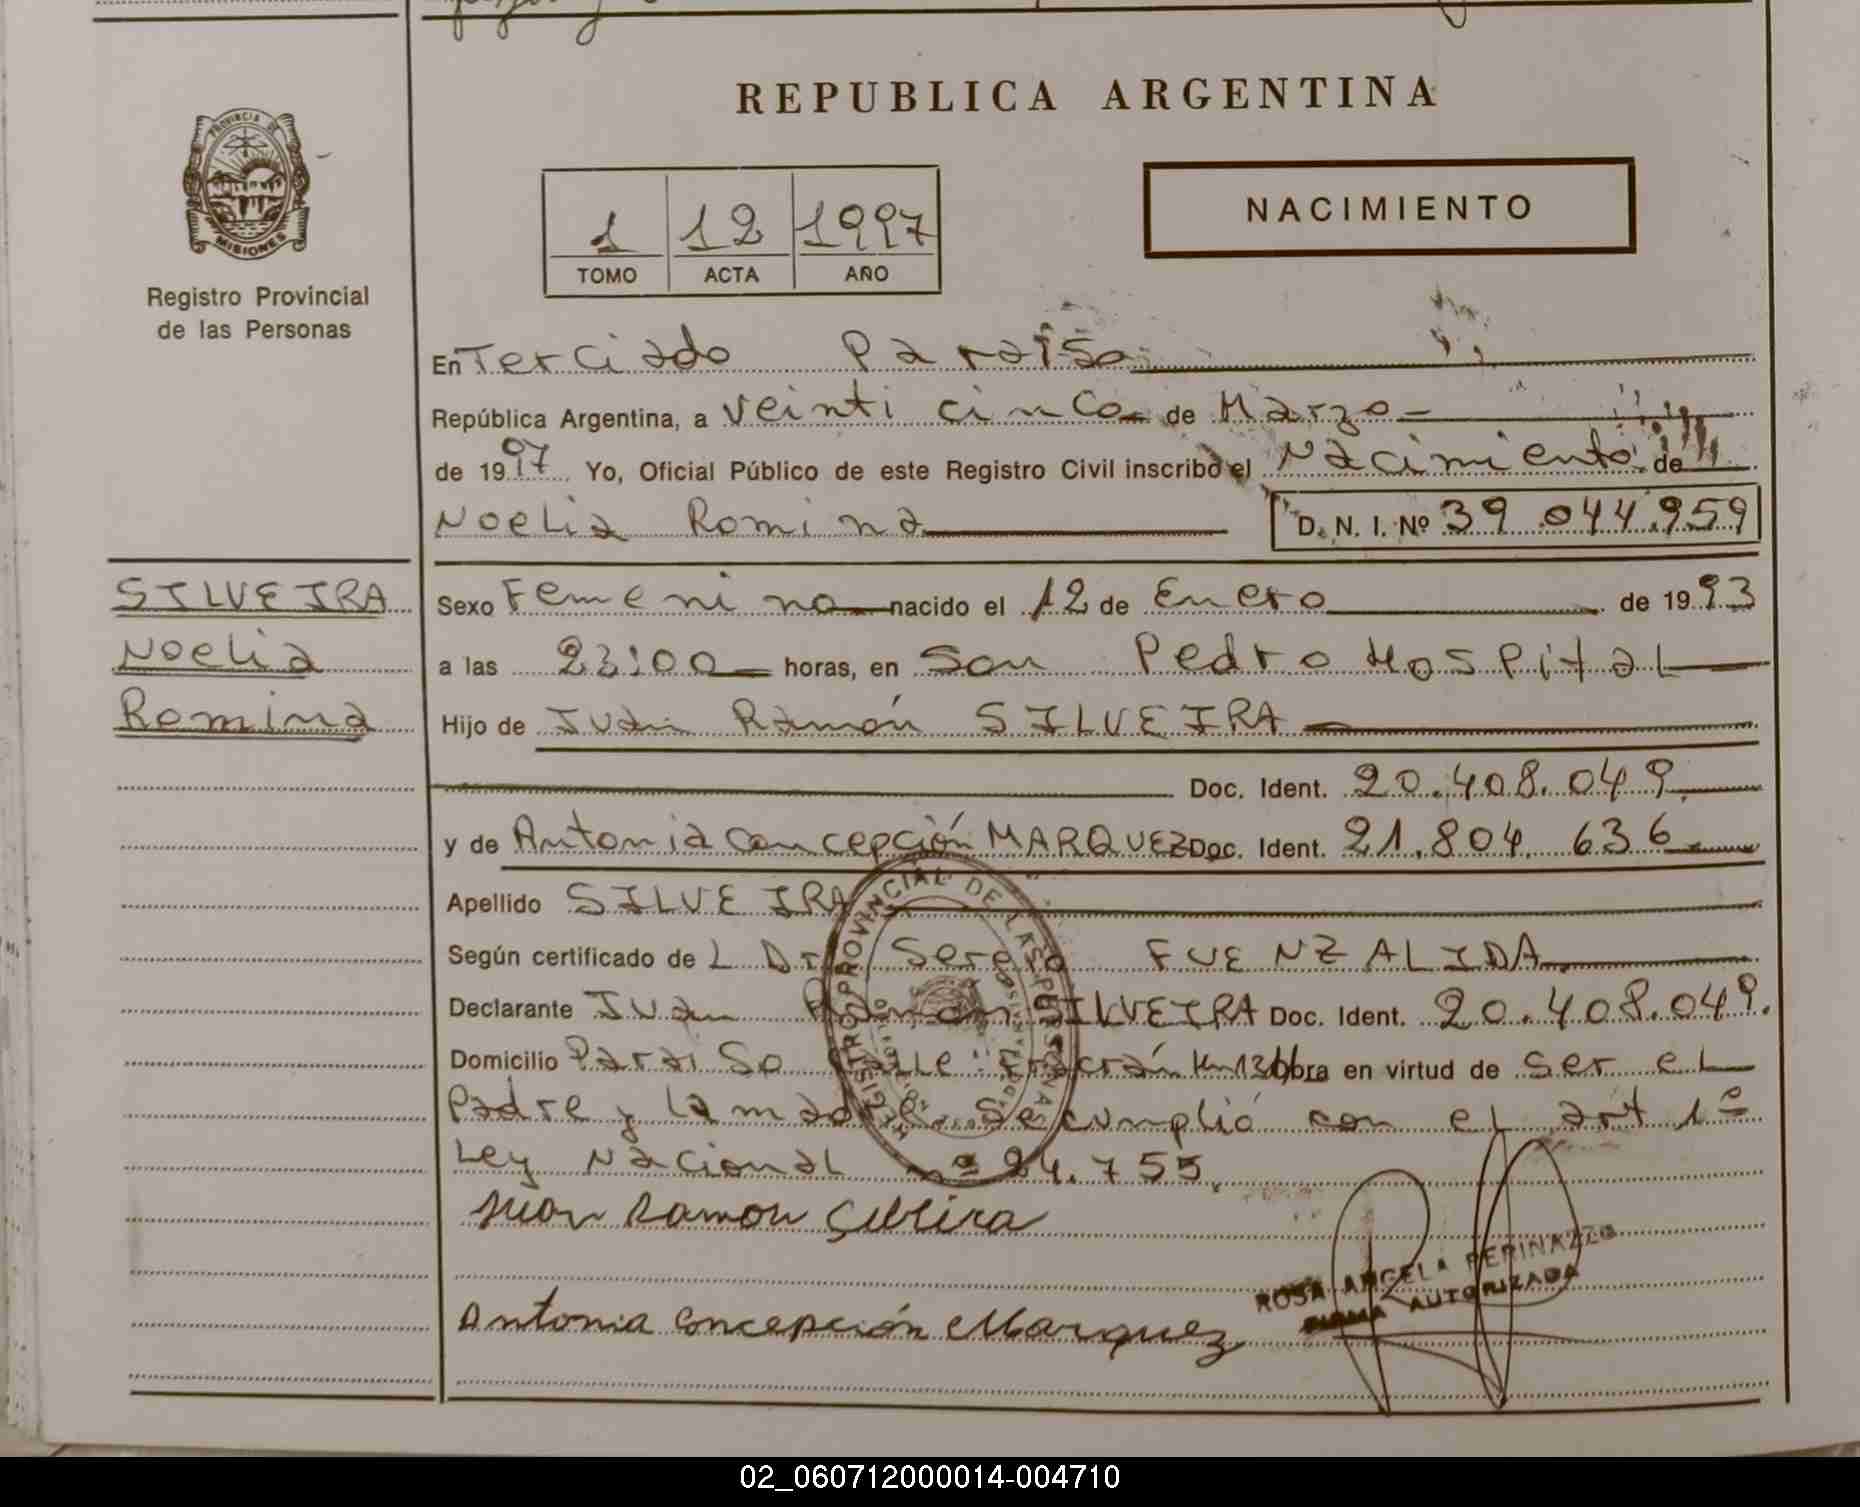 REPUBLICA ARGENTINA
PROVINCIA DE
MISIONES
Registro Provincial
de las Personas
1 12 1997
TOMO ACTA AÑO
NACIMIENTO
En Terciado Paraiso
República Argentina, a veinti cinco de Marzo
de 1997 Yo, Oficial Público de este Registro Civil inscribo el Nacimiento de
Noelia Romina D. N. I. Nº 39.044.959
SILVEIRA
Noelia
Romina
Sexo Femenino nacido el 12 de Enero de 1993
a las 23:00 horas, en San Pedro Hospital
Hijo de Juan Ramón SILVEIRA
Doc. Ident. 20.408.049
y de Antonia Concepción MARQUEZ Doc. Ident. 21.804.636
Apellido SILVEIRA
Según certificado de L Dr. FUENZALIDA
Declarante Juan Ramón SILVEIRA Doc. Ident. 20.408.049.
Domicilio Paraiso Calle: Fracrán Km obra en virtud de ser el
Padre y la madre. Se cumplió con el art 1º
Ley Nacional nº 24.755.
Juan Ramon Silveira
Antonia Concepción Marquez
ROSA ANGELA PERINAZZO
FIRMA AUTORIZADA
REGISTRO PROVINCIAL DE LAS PERSONAS
02_060712000014-004710